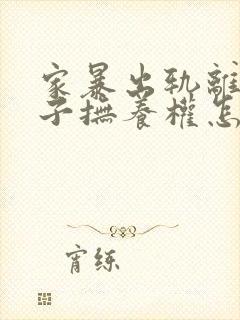 家暴出轨離
子撫養權怎
宵练